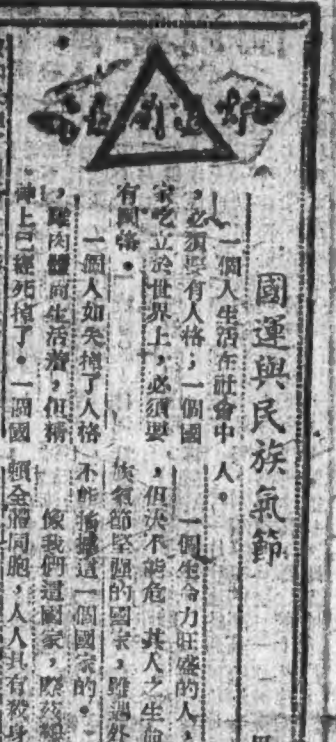 國運與民族氣節
一個人生活在社會中
，必須要有人格；一個國
家屹立於世界上，必須要
有國格。
一個人如失掉了人格
，雖肉體尚生活着，但精
神上已經死掉了。一個國
人。
一個生命力旺盛的人，
，但決不能危 其人之生命
族氣節堅強的國家，雖遇外
不能搖撼這一個國家的。
像我們這國家，際茲
賴全體同胞，人人具有殺身